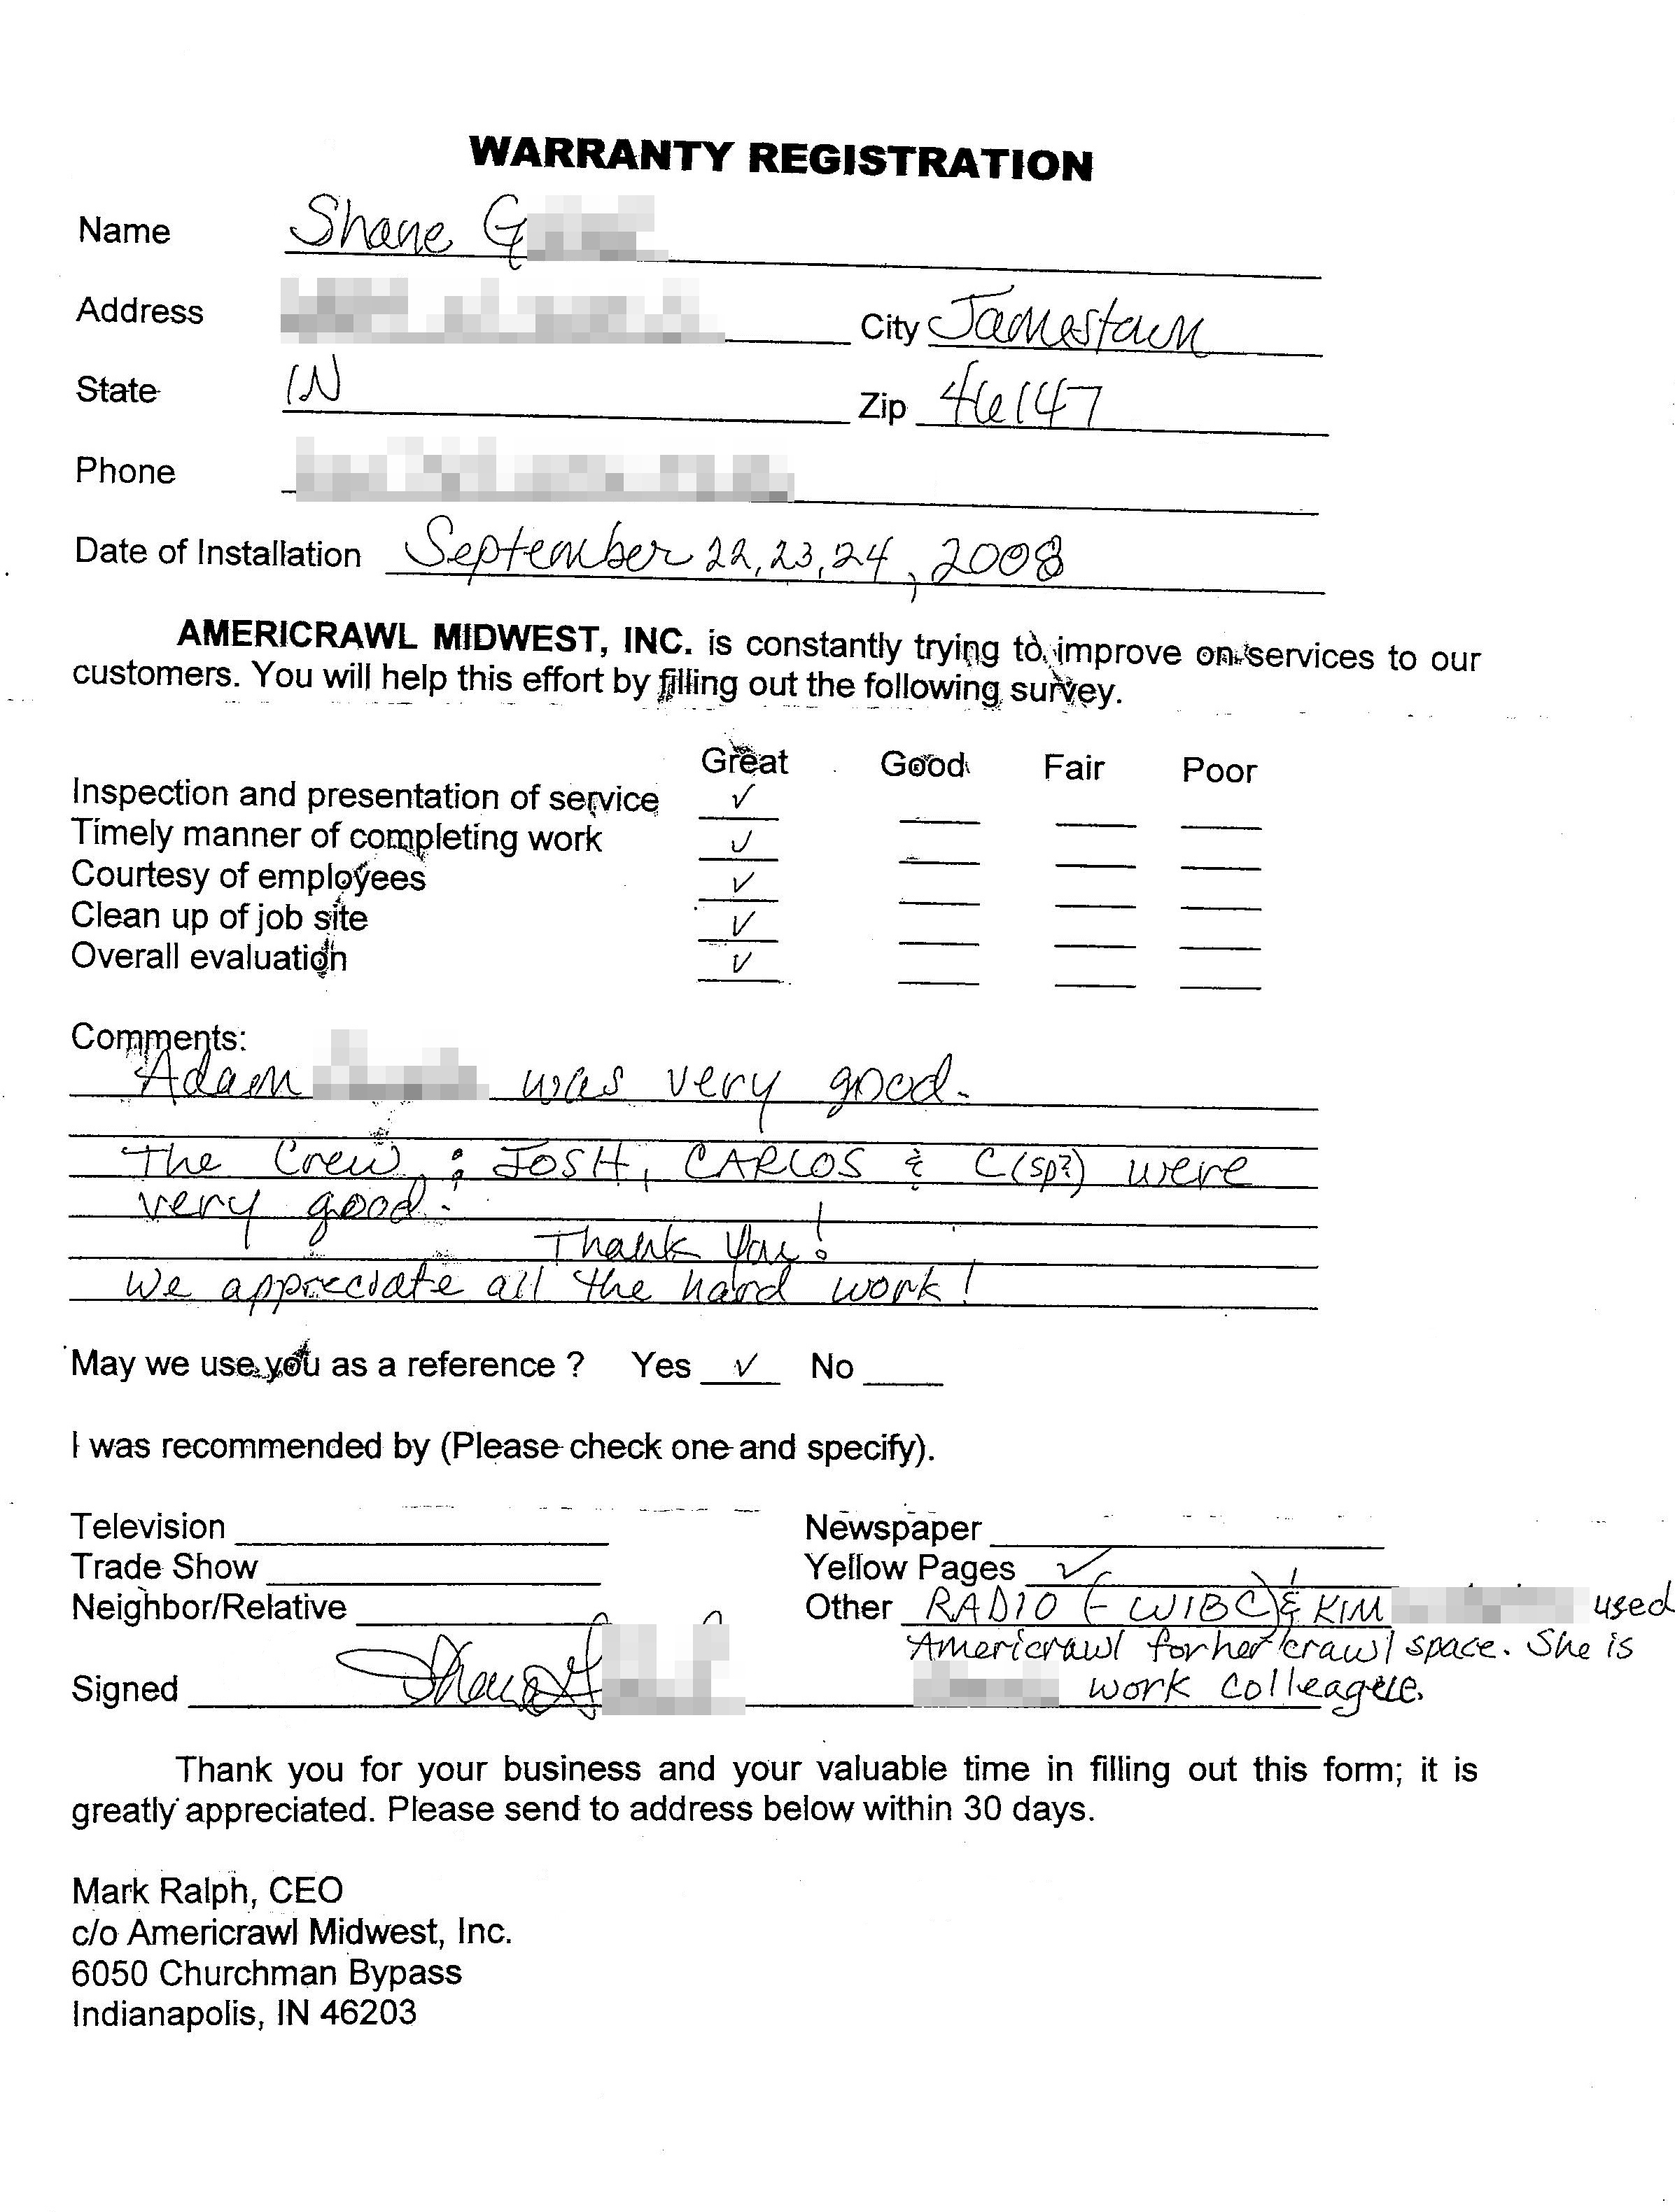 WARRANTY REGISTRATION
Name Shane G
Address City Jamestown
State IN Zip 46147
Phone
Date of Installation September 22, 23, 24, 2008
AMERICRAWL MIDWEST, INC. is constantly trying to improve on services to our
customers. You will help this effort by filling out the following survey.
Great Good Fair Poor
Inspection and presentation of service ✓
Timely manner of completing work ✓
Courtesy of employees ✓
Clean up of job site ✓
Overall evaluation ✓
Comments:
Adam was very good.
The Crew: JOSH, CARLOS & C(sp?) were
very good.
Thank You!
We appreciate all the hard work!
May we use you as a reference ? Yes ✓ No
I was recommended by (Please check one and specify).
Television Newspaper
Trade Show Yellow Pages ✓
Neighbor/Relative Other RADIO (-WIBC) & KIM used
Americrawl for her crawl space. She is
Signed Shane G work colleague.
Thank you for your business and your valuable time in filling out this form; it is
greatly appreciated. Please send to address below within 30 days.
Mark Ralph, CEO
c/o Americrawl Midwest, Inc.
6050 Churchman Bypass
Indianapolis, IN 46203